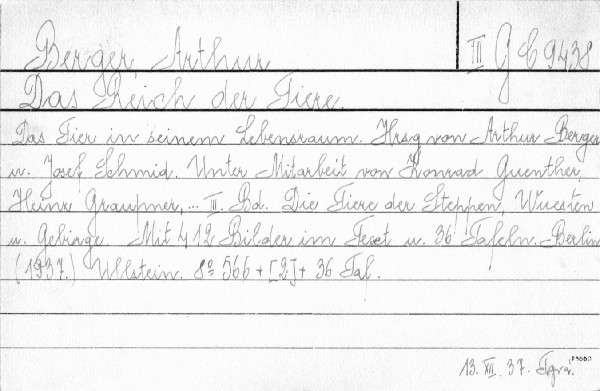 Berger, Arthur III G C 9438
Das Reich der Tiere.
Das Tier in seinem Lebensraum. Hrsg von Arthur Berger
u. Josef Schmid. Unter Mitarbeit von Konrad Guenther,
Heinz Graupner, ... III. Bd. Die Tiere der Steppen, Wuesten
u. Gebirge. Mit 412 Bilder im Text u. 36 Tafeln. Berlin
(1937.) Ullstein. 8° 566 + [2] + 36 Taf.
13. XII. 37.